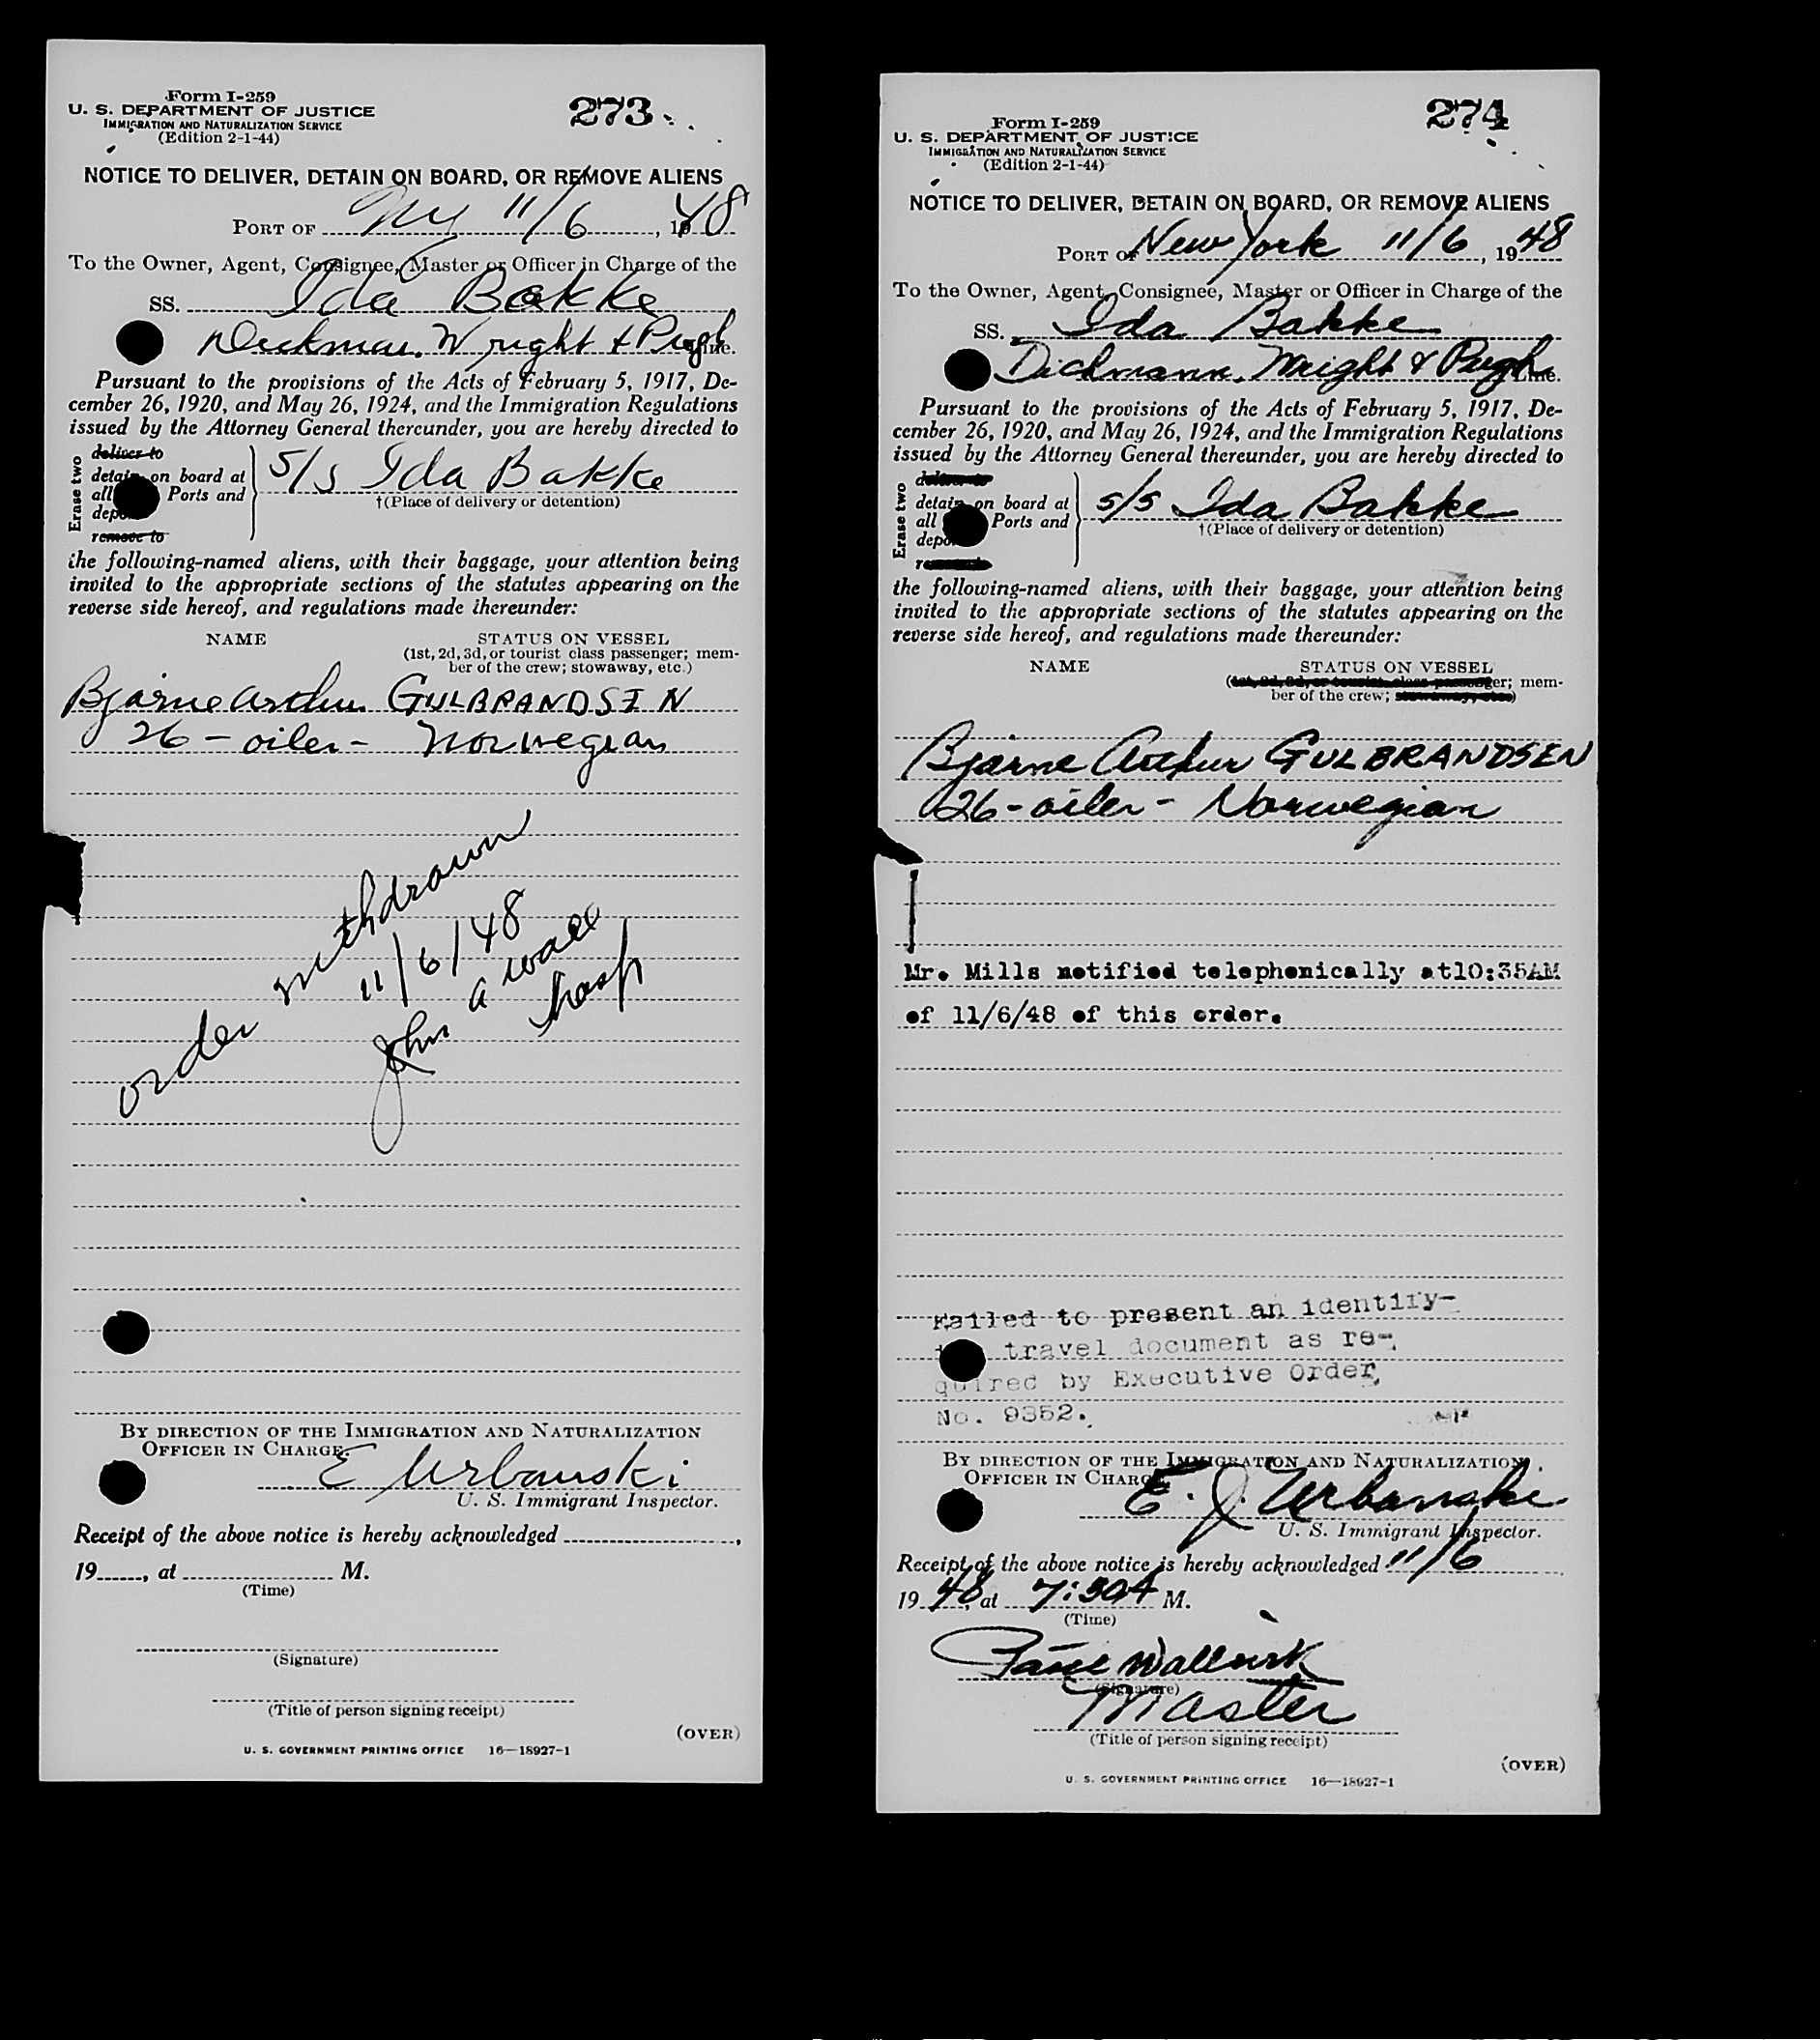 Form I-259
U. S. DEPARTMENT OF JUSTICE
IMMIGRATION AND NATURALIZATION SERVICE
(Edition 2-1-44)
273
NOTICE TO DELIVER, DETAIN ON BOARD, OR REMOVE ALIENS
PORT OF NY 11/6, 1948
To the Owner, Agent, Consignee, Master or Officer in Charge of the
SS. Ida Bakke
Dickman. Wright & Pugh Line.
Pursuant to the provisions of the Acts of February 5, 1917, De-
cember 26, 1920, and May 26, 1924, and the Immigration Regulations
issued by the Attorney General thereunder, you are hereby directed to
Erase two
deliver to
detain on board at
all Ports and
depo
remove to
S/S Ida Bakke
†(Place of delivery or detention)
the following-named aliens, with their baggage, your attention being
invited to the appropriate sections of the statutes appearing on the
reverse side hereof, and regulations made thereunder:
NAME STATUS ON VESSEL
(1st, 2d, 3d, or tourist class passenger; mem-
ber of the crew; stowaway, etc.)
Bjarne Arthur GULBRANDSEN
26 - oiler - Norwegian
order withdrawn
11/6/48
John a
BY DIRECTION OF THE IMMIGRATION AND NATURALIZATION
OFFICER IN CHARGE.
E Urbanski
U. S. Immigrant Inspector.
Receipt of the above notice is hereby acknowledged ,
19 , at M.
(Time)
(Signature)
(Title of person signing receipt)
(OVER)
U. S. GOVERNMENT PRINTING OFFICE 16—18927-1
Form I-259
U. S. DEPARTMENT OF JUSTICE
IMMIGRATION AND NATURALIZATION SERVICE
(Edition 2-1-44)
274
NOTICE TO DELIVER, DETAIN ON BOARD, OR REMOVE ALIENS
PORT OF New York 11/6, 1948
To the Owner, Agent, Consignee, Master or Officer in Charge of the
SS. Ida Bakke
Dichmann. Wright & Pugh Line.
Pursuant to the provisions of the Acts of February 5, 1917, De-
cember 26, 1920, and May 26, 1924, and the Immigration Regulations
issued by the Attorney General thereunder, you are hereby directed to
Erase two
detain on board at
all Ports and
depo
S/S Ida Bakke
†(Place of delivery or detention)
the following-named aliens, with their baggage, your attention being
invited to the appropriate sections of the statutes appearing on the
reverse side hereof, and regulations made thereunder:
NAME STATUS ON VESSEL
(1st, 2d, 3d, or tourist class passenger; mem-
ber of the crew; stowaway, etc.)
Bjarne Arthur GULBRANDSEN
26 - oiler - Norwegian
Mr. Mills notified telephonically at10:35AM
of 11/6/48 of this order.
Failed to present an identify-
travel document as re-
quired by Executive Order
No. 9352.
BY DIRECTION OF THE IMMIGRATION AND NATURALIZATION
OFFICER IN CHARGE.
E. J. Urbanski
U. S. Immigrant Inspector.
Receipt of the above notice is hereby acknowledged 11/6
1948, at 7:50A M.
(Time)
(Signature)
Master
(Title of person signing receipt)
(OVER)
U. S. GOVERNMENT PRINTING OFFICE 16—18927-1